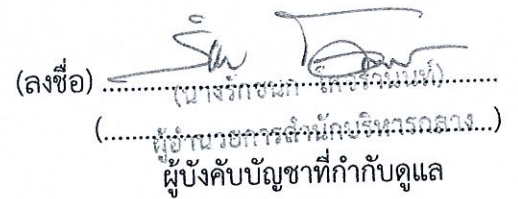 (ลงชื่อ) ..........................................................
(นางรักชนก
(..........................................................)
ผู้อำนวยการสำนักบริหารกลาง
ผู้บังคับบัญชาที่กำกับดูแล